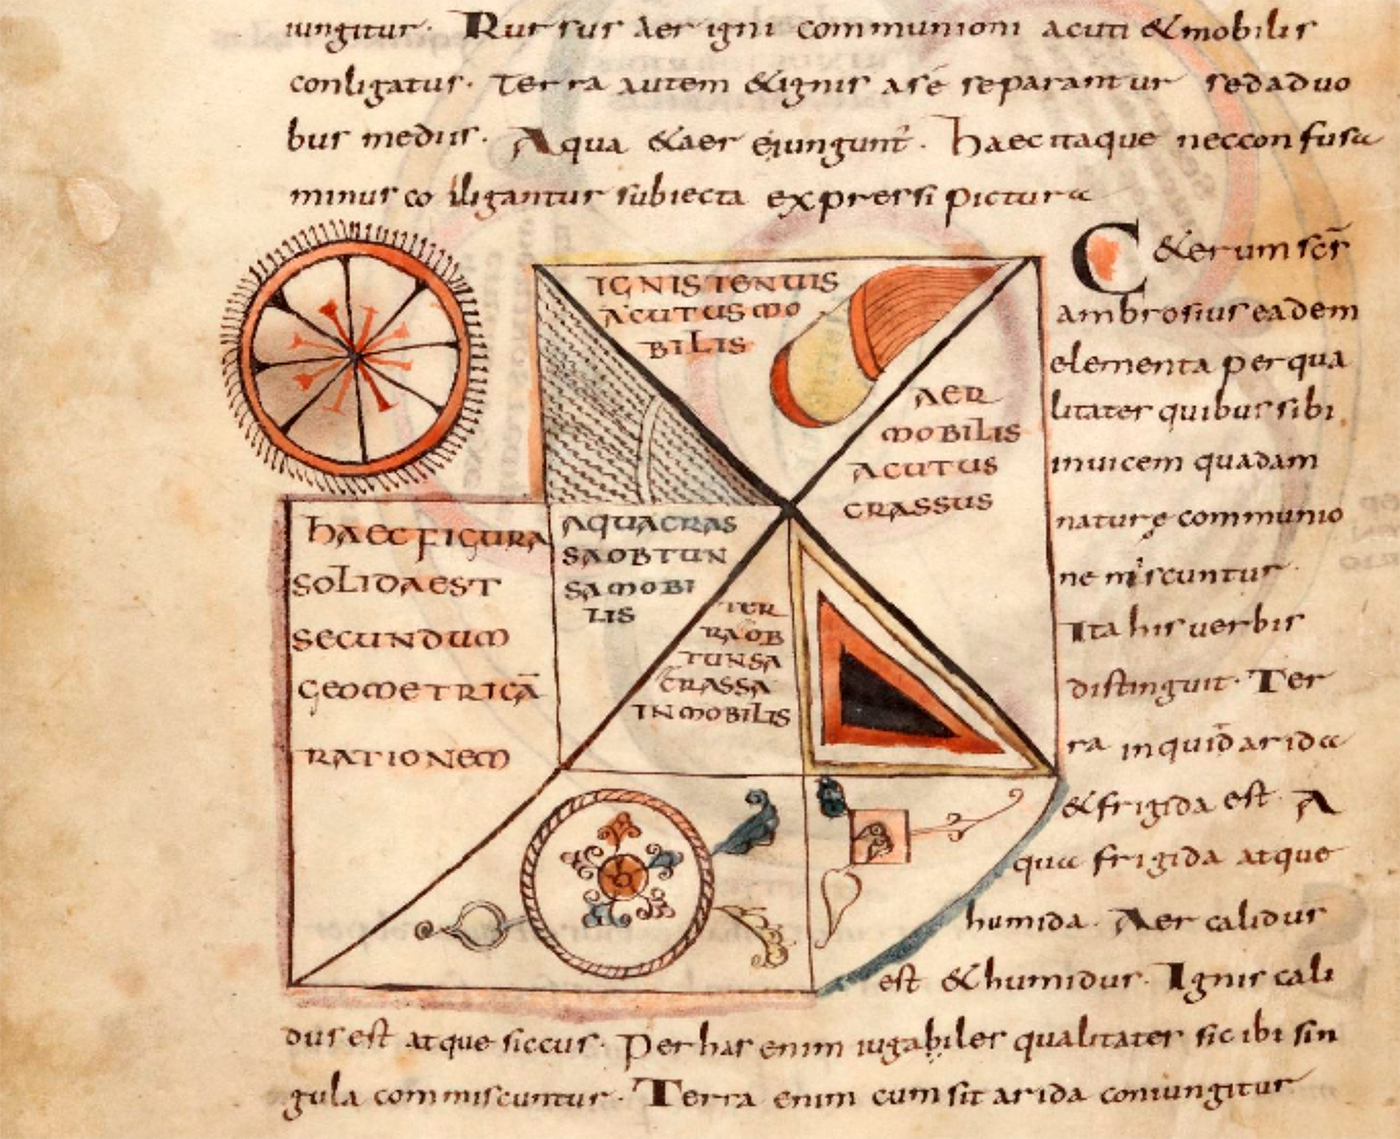 iungitur. Rursus aer igni communioni acuti & mobilis
conligatus. Terra autem & ignis a sé separantur sed a duo
bus mediis. Aqua & aer eiungunt̃. Haec itaque nec confusa
minus colligantur subiecta expressi pictura
IGNIS TENUIS
ACUTUS MO
BILIS
AER
MOBILIS
ACUTUS
CRASSUS
HAEC FIGURA
SOLIDA EST
SECUNDUM
GEOMETRICĀ
RATIONEM
AQUA CRAS
SA OBTUN
SA MOBI
LIS
TER
RA OB
TUNSA
CRASSA
INMOBILIS
C&erum scs̄
ambrosius eadem
elementa per qua
litates quibus sibi
inuicem quadam
naturę communio
ne miscuntur.
Ita his uerbis
distinguit. Ter
ra inquid arida
& frigida est. A
qua frigida atque
humida. Aer calidus
est & humidus. Ignis cali
dus est atque siccus. Per has enim iugabiles qualitates sic ibi sin
gula commiscuntur. Terra enim cum sit arida coniungitur